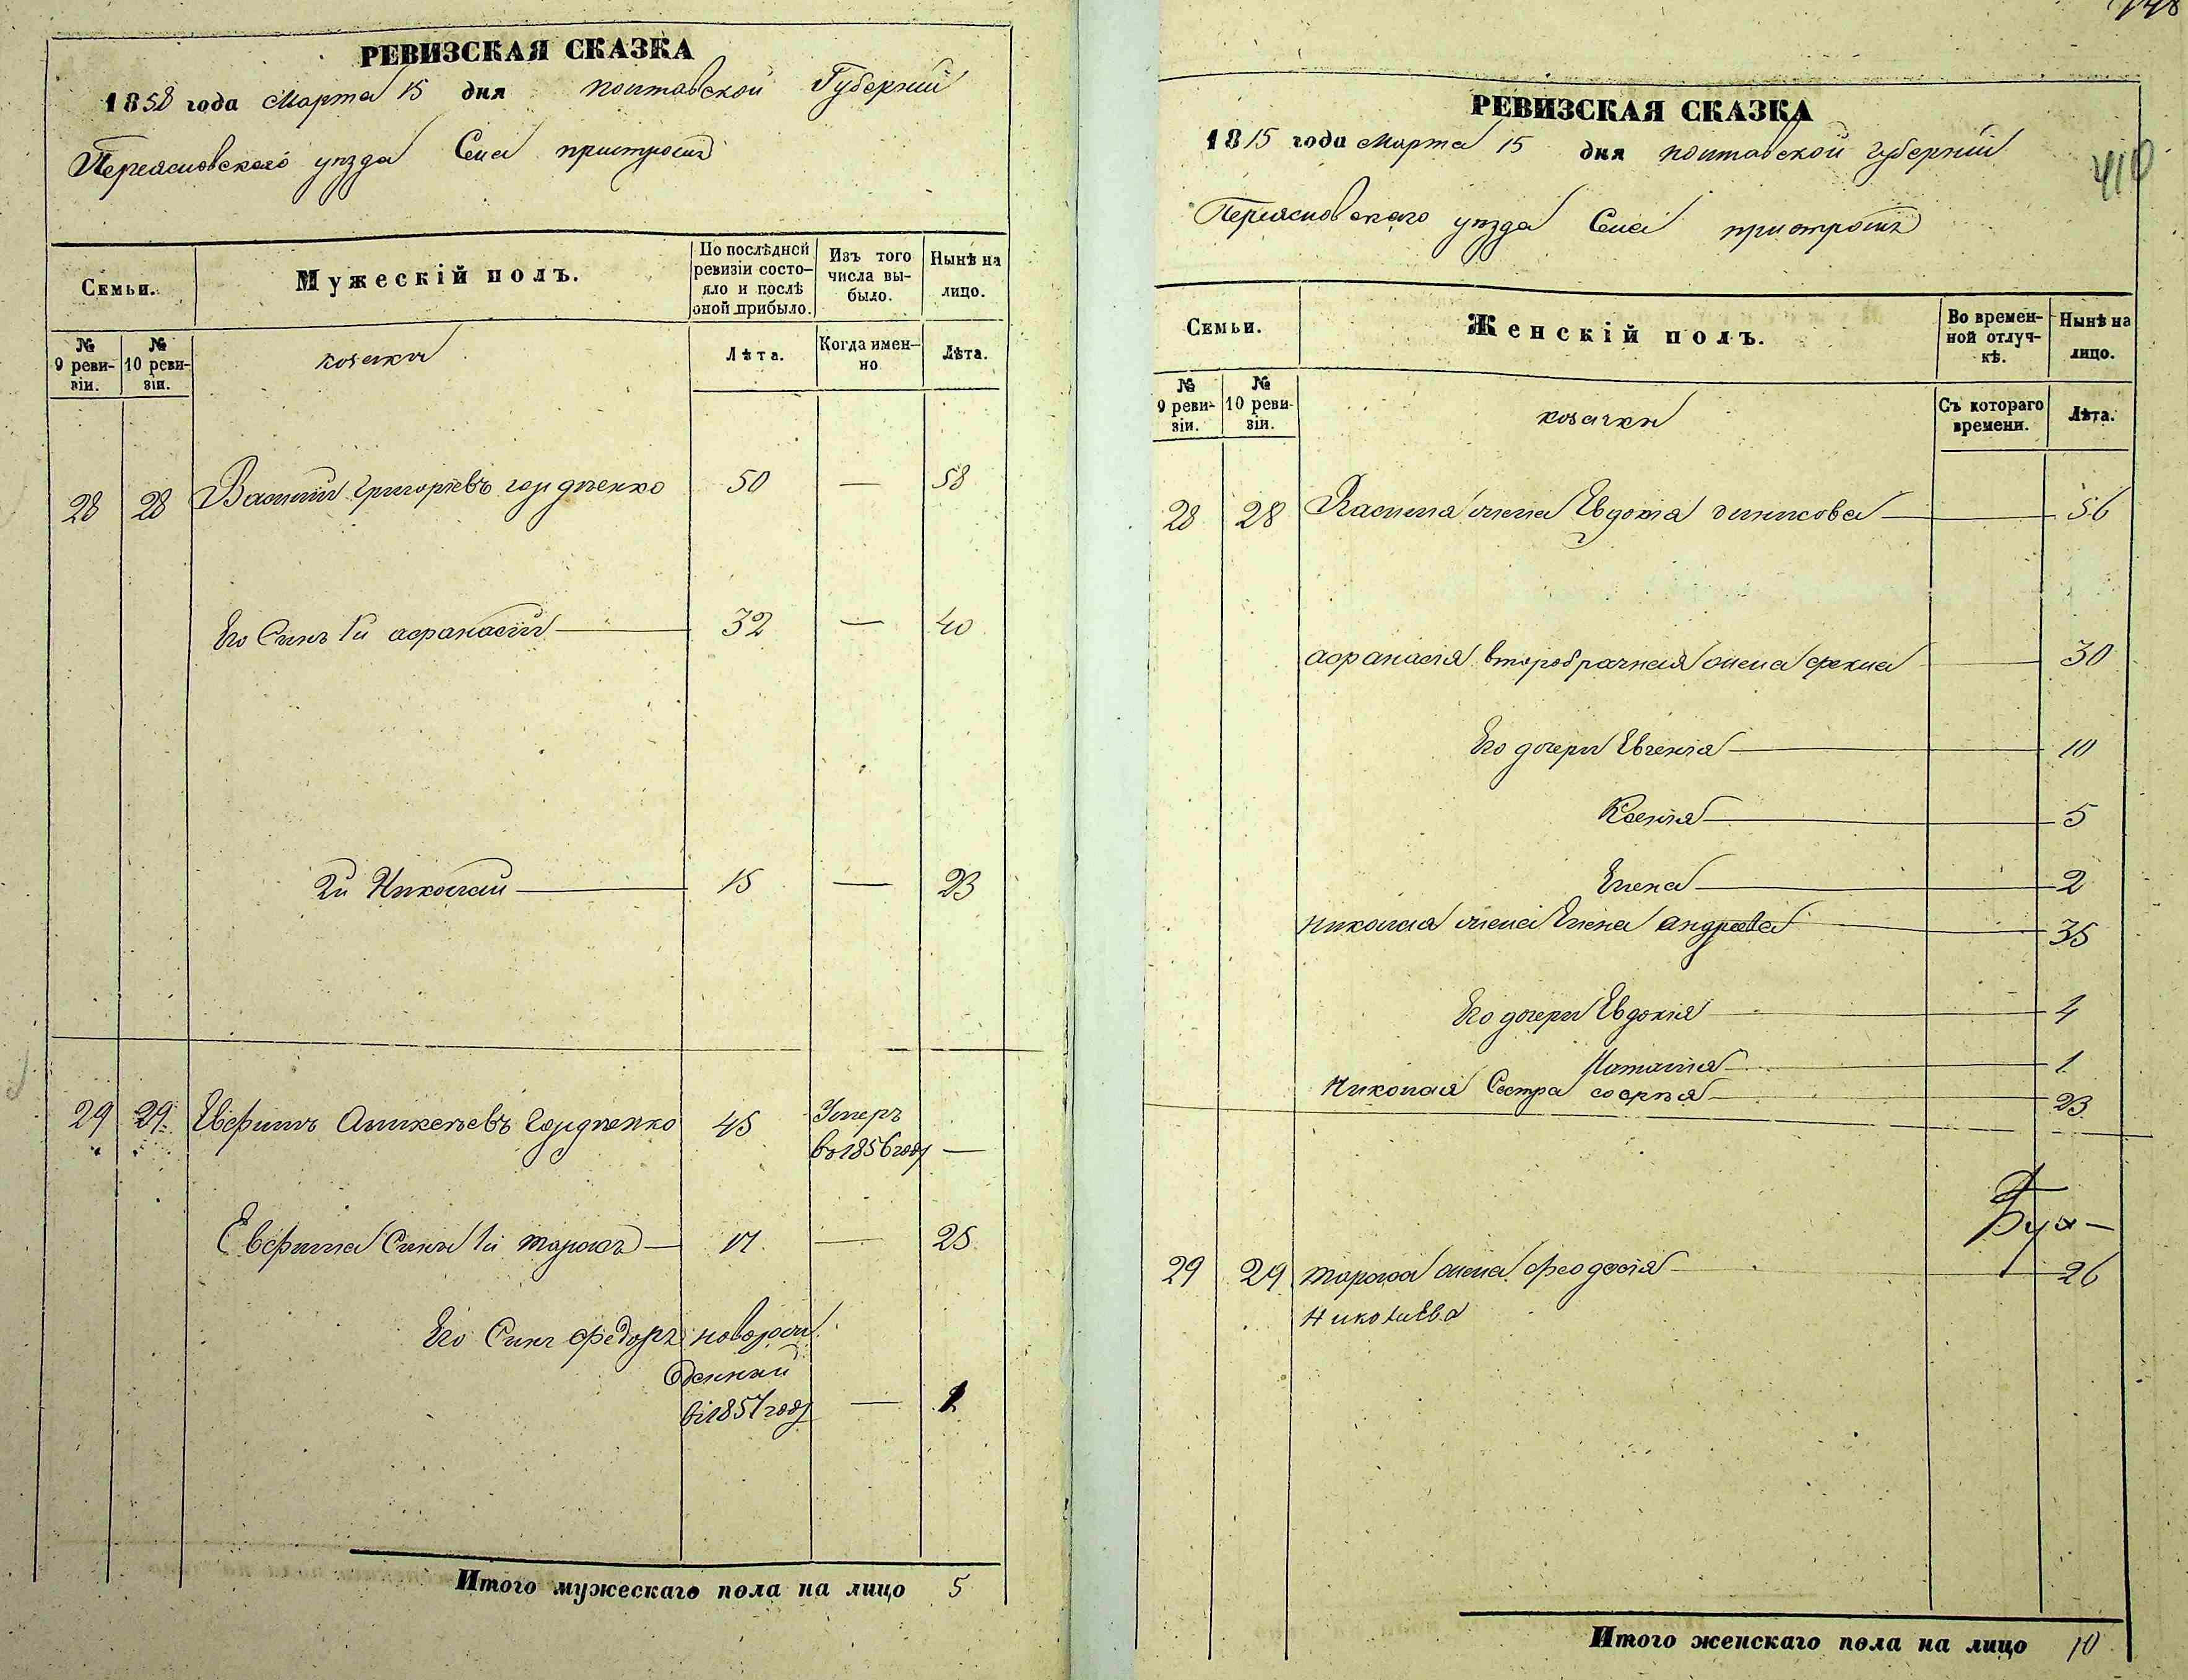 РЕВИЗСКАЯ СКАЗКА
1858 года Марта 15 дня Полтавской Губерніи
Переясловского уезда Села пристромъ
Семьи.
Мужескій полъ.
По послѣдней ревизіи состо-
яло и послѣ
оной прибыло.
Изъ того
числа вы-
было.
Нынѣ на
лицо.
№
9 реви-
зіи.
№
10 реви-
зіи.
козаки
Лѣта.
Когда имен-
но
Лѣта.
28 28 Василий григоріевъ гордѣенко 50 — 58
Его Синъ 1й афанасій 32 — 40
2й Николай 15 — 23
29 29 Евфимъ Аникеевъ Гордѣенко 45 Умеръ
въ 1856 году —
Евфима Синъ 1й тарасъ 17 — 25
Его Синъ федоръ новорож
денний
въ 1857 году — 1
Итого мужескаго пола на лицо 5
148
РЕВИЗСКАЯ СКАЗКА
1815 года Марта 15 дня полтавской губерніи
410
Переясловского уезда Села пристромъ
Семьи.
Женскій полъ.
Во времен-
ной отлуч-
кѣ.
Нынѣ на
лицо.
№
9 реви-
зіи.
№
10 реви-
зіи.
козачки
Съ котораго
времени.
Лѣта.
28 28 Василия жена Евдокія динисова 56
афанасія второбрачная жена фекла 30
Его дочери Евгенія 10
Ксенія 5
Елена 2
николая жена Елена андреева 35
Его дочери Евдокія 4
Наталія 1
Николая Сестра софія 23
29 29 тараса жена феодосія 26
Николаева
Итого женскаго пола на лицо 10